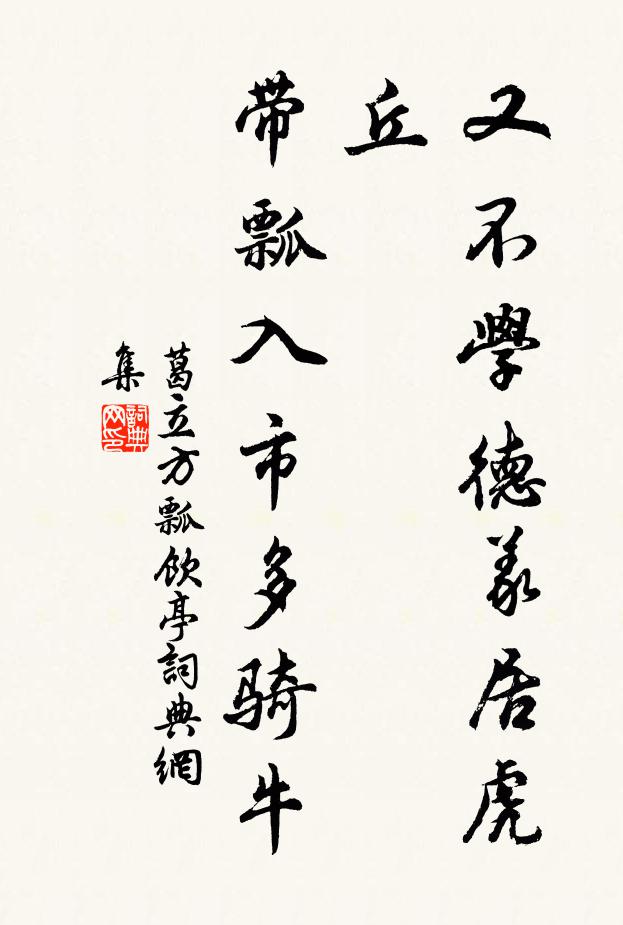 又不學德義居虎
丘
带瓢入市多骑牛
葛立方瓢飲亭詞典網
集
詞典
网印